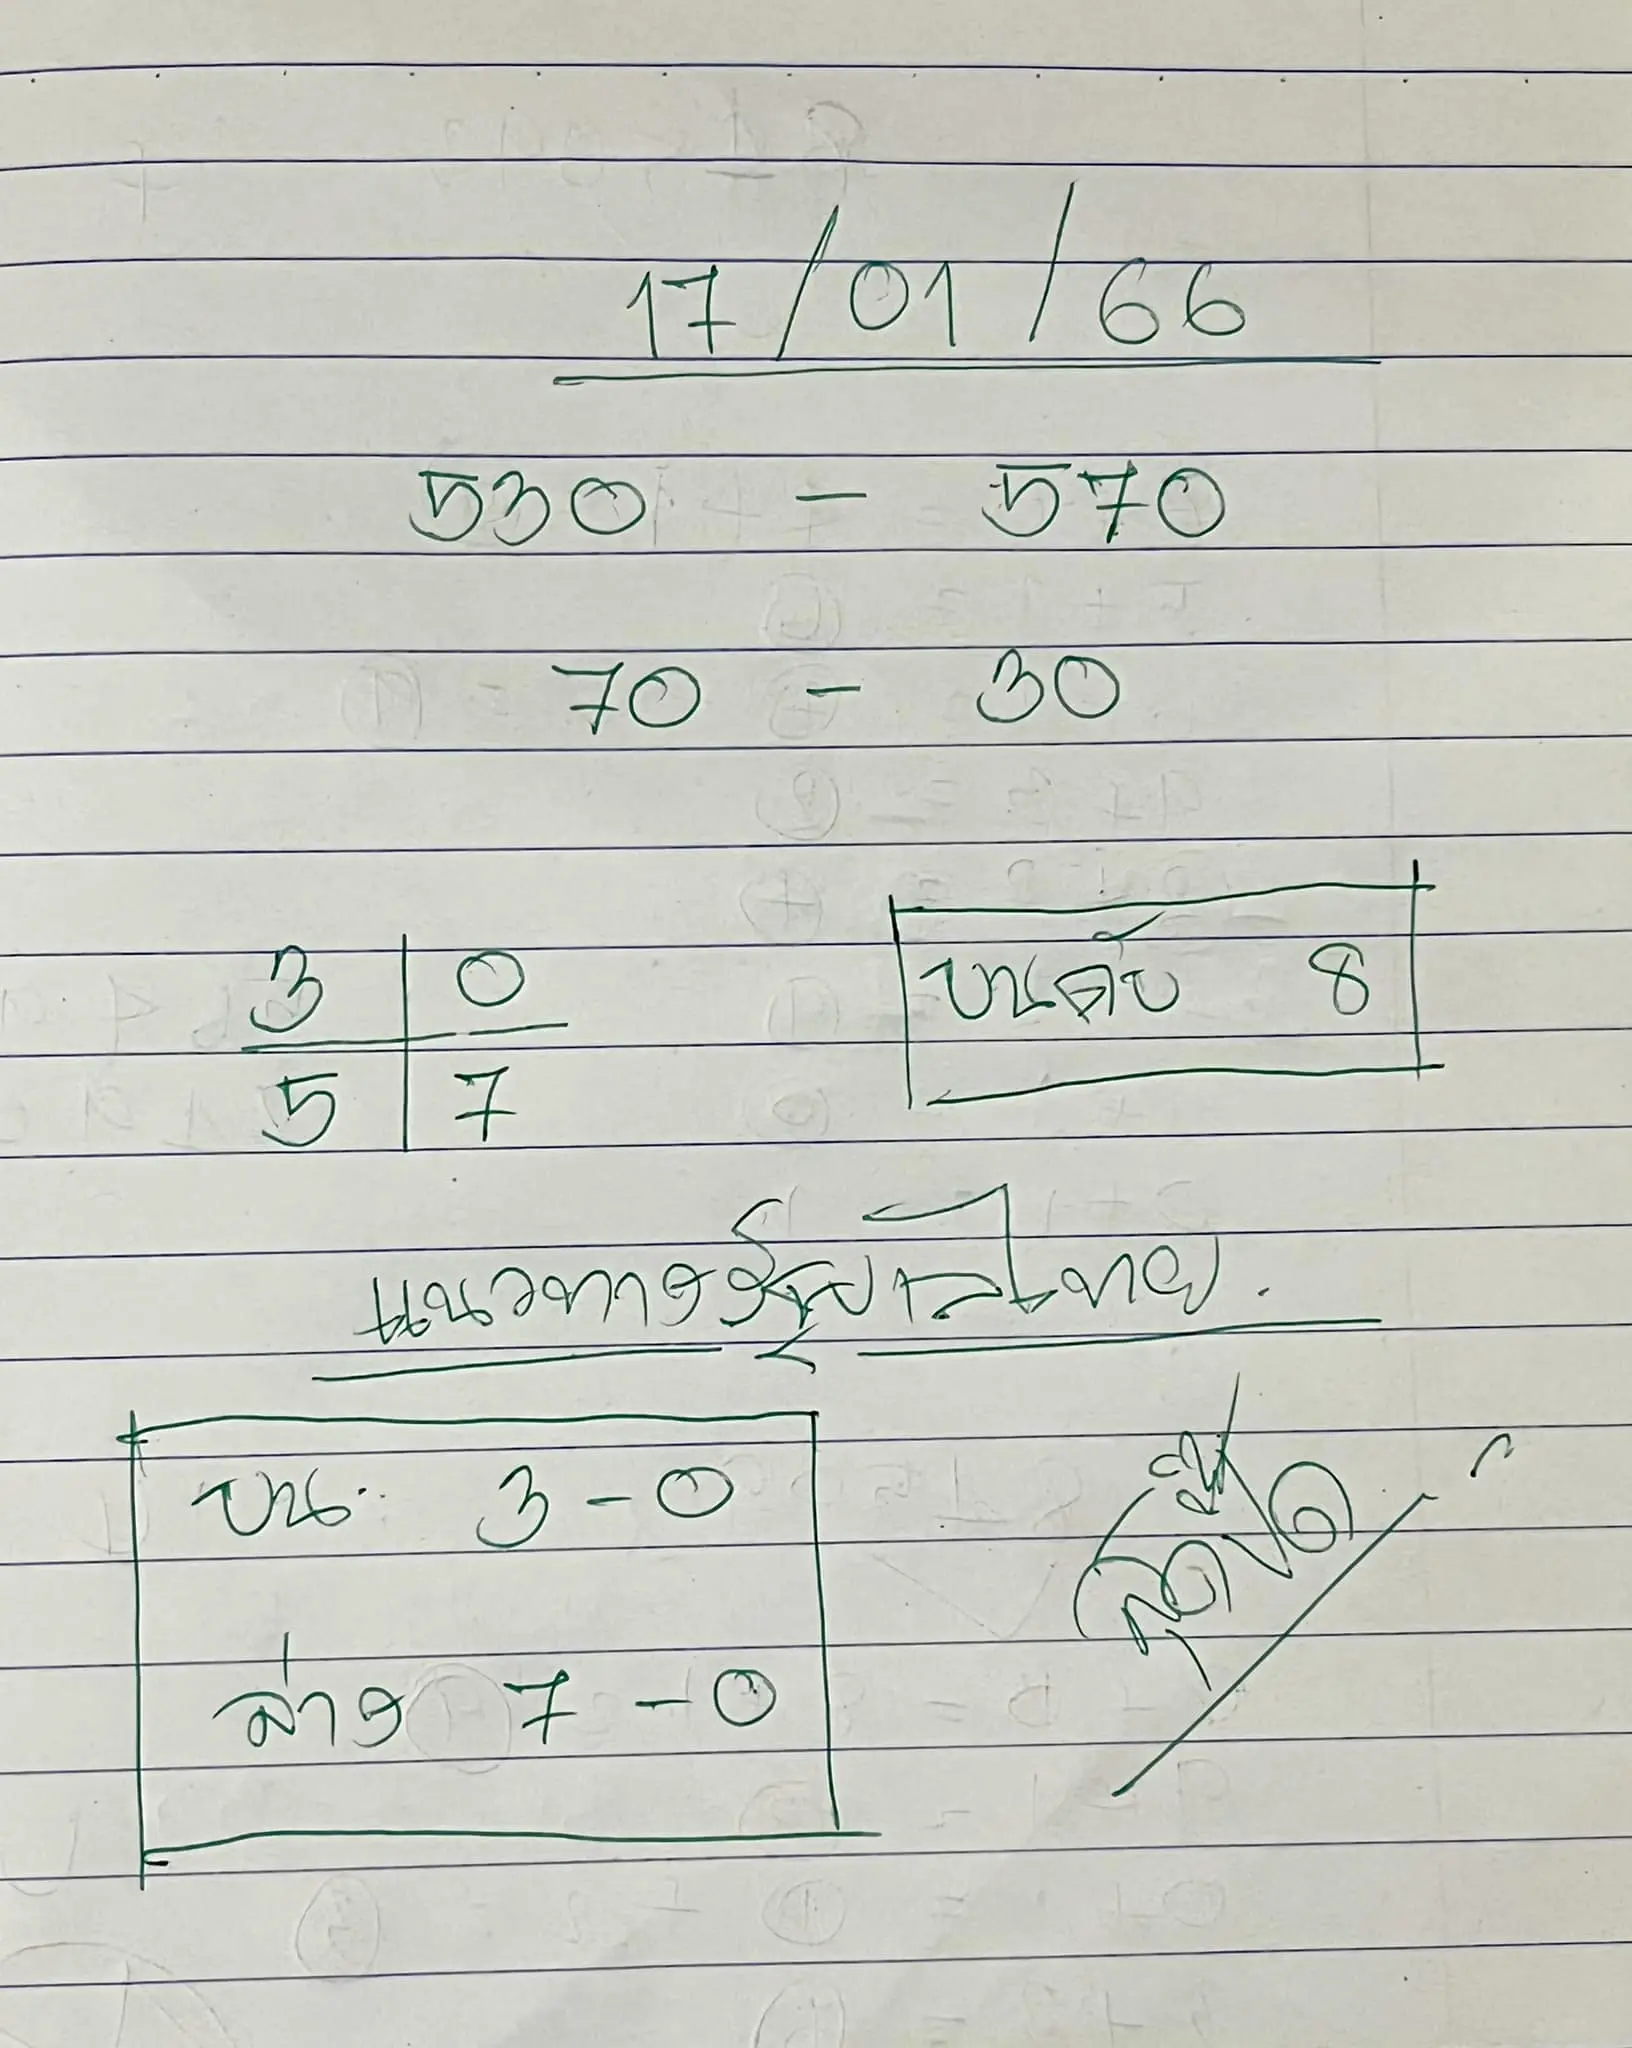 17/01/66
530 - 570
70 - 30
3 0
5 7
บนดับ 8
แนวทางรัฐบาลไทย.
บน 3-0
ล่าง 7-0